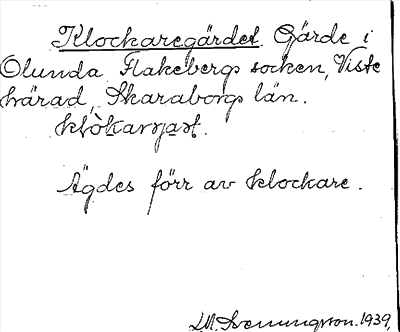 Klockaregärdet. Gärde i
Olunda, Flakebergs socken, Viste
härad, Skaraborgs län.
Ägdes förr av klockare.
1939.